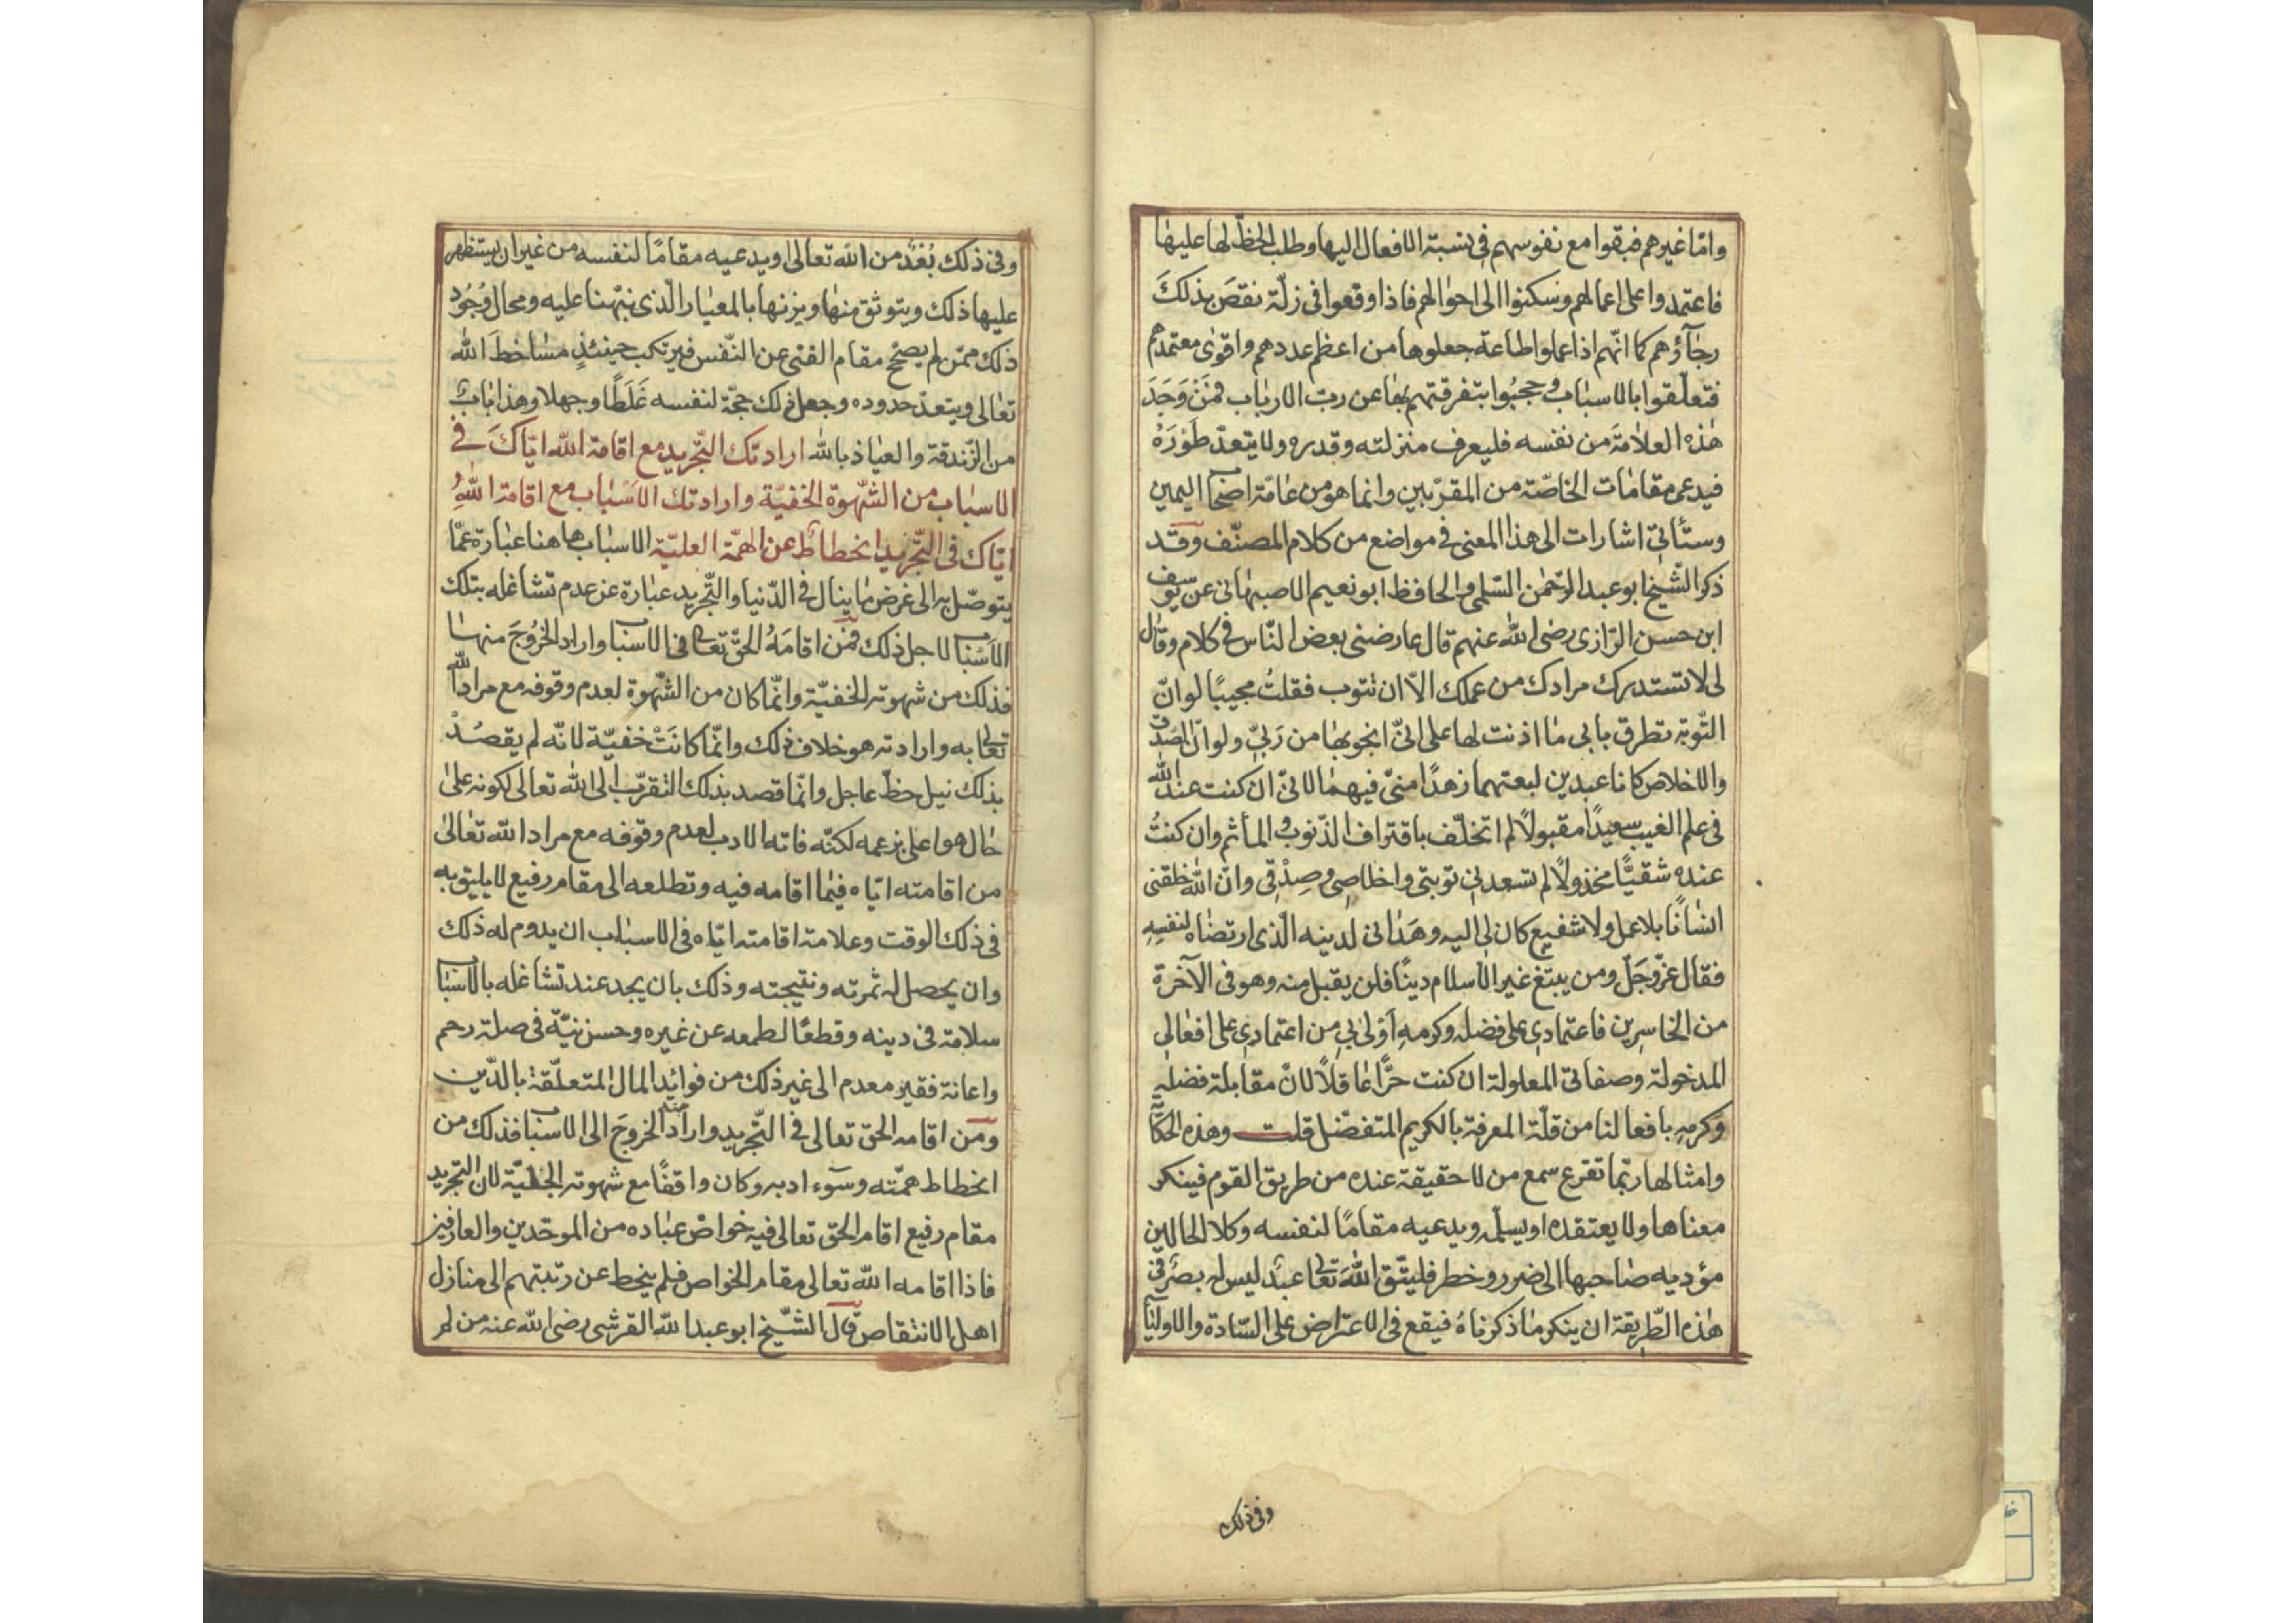 وامّا غيرهم فبقوا مع نفوسهم فى نسبة الافعال اليها وطلب الحظّ لها عليها
فاعتمدوا على اعمالهم وسكنوا الى احوالهم فاذا وقعوا فى زلّة نقص بذلك
رجآؤهم كما انّهم اذا عملوا طاعة جعلوها من اعظم عددهم واقوى معتمدهم
فتعلّقوا بالاسباب وحجبُوا بتفرقتهم بها عن ربّ الارباب فمَنْ وَجَدَ
هذه العلامَة من نفسه فليعرف منزلته وقدره ولا يتعدّ طَوْرَهُ
فيدعى مقامات الخاصّة من المقرّبين وانما هو من عامّة اصحاب اليمين
وستأتى اشارات الى هذا المعنى فى مواضع من كلام المصنّف وقد
ذكر الشّيخ ابو عبد الرّحمن السّلمى والحافظ ابو نعيم الاصبهانى عن يوسف
ابن حسين الرّازى رضى الله عنهم قال عارضنى بعض النّاس فى كلام وقال
لى لا تستدرك مرادك من عملك الّا ان تتوب فقلتُ مجيبًا لو انّ
التّوبة تطرق بابى ما اذنت لها على انّى انجو بها من ربّى ولو انّ الصدق
والاخلاص كانا عبدين لبعتهما زهدًا منّى فيهما لانّى ان كنت عند الله
فى علم الغيب سعيدًا مقبولًا لم اتخلّف باقتراف الذّنوب والمأثم وان كنتُ
عنده شقيًّا مخذولًا لم تسعدنى توبتى واخلاصى وصِدْقِى وانّ الله خلقنى
انسانًا بلا عمل ولا شفيع كان لى اليه وهَدانى لدينه الّذى ارتضاه لنفسِهِ
فقال عزّ وجَلّ ومن يبتغ غير الاسلام دينًا فلن يقبل منه وهو فى الآخرة
من الخاسرين فاعتمادى على فضله وكرمهِ اَوْلىٰ بى من اعتمادى على افعالى
المدخولة وصفاتى المعلولة ان كنت حرًّا عاقلًا لانّ مقابلة فضلهِ
وكرمِهِ بافعالنا من قلّة المعرفة بالكريم المتفضّل قلت وهذه الحكاية
وامثالها ربّما تقرع سمع من لا حقيقة عنده من طريق القوم فينكر
معناها ولا يعتقده او يسلّمه ويدعيه مقامًا لنفسه وكلا الحالين
مؤديه صاحبها الى ضرر وخطر فليتّق اللهَ تعالى عبد ليس له بصر فى
هذه الطّريقة ان ينكر ما ذكرناهُ فيقع فى الاعتراض على السّادة والاوليآء
وفى ذلك
وفى ذلك بُعْدٌ من الله تعالى او يدعيه مقامًا لنفسه من غير ان يستظهر
عليها ذلك ويتوثق منها ويزنها بالمعيار الّذى نبّهنا عليه ومحال وُجُود
ذلك ممّن لم يصحّ مقام الفنى عن النّفس فيرتكب حينئذٍ مساخط الله
تعالى ويتعدّ حدوده وجعل ذلك حجّة لنفسه غَلَطًا وجهلًا وهذا باب
من الزّندقة والعياذ بالله ارادتك التّجريد مع اقامة الله ايّاكَ فى
الاسباب من الشّهوة الخفيّة وارادتك الاسْباب مع اقامة اللهِ
ايّاك فى التّجريد انحطاطٌ عن الهمّة العليّة الاسباب هاهنا عبارة عمّا
يتوصّل به الى غرض ما ينال فى الدّنيا والتّجريد عبارة عن عدم تشاغله بتلك
الاسْباب لاجل ذلك فمَن اقامَهُ الحقّ تعالى فى الاسباب واراد الخُرُوجَ منها
فذلك من شهوته الخفيّة وانّما كان من الشّهوة لعدم وقوفه مع مراد الله
تعالى به وارادته هو خلاف ذلك وانّما كانَتْ خفيّة لانّه لم يقصُدْ
بذلك نيل حظّ عاجل وانّما قصد بذلك التقرّب الى الله تعالى لكونه على
حال هو اعلى بزعمه لكنّه فاته الادب لعدم وقوفه مع مراد الله تعالى
من اقامته ايّاه فيما اقامه فيه وتطلعه الى مقام رفيع لا يليق به
فى ذلك الوقت وعلامة اقامته ايّاه فى الاسباب ان يدوم له ذلك
وان يحصل له ثمرته ونتيجته وذلك بان يجد عند تشاغله بالاسباب
سلامة فى دينه وقطعًا لطمعه عن غيره وحسن نيّة فى صلة رحم
واعانة فقير معدم الى غير ذلك من فوائد المال المتعلّقة بالدّين
ومَن اقامه الحق تعالى فى التّجريد واراد منه الخروجَ الى الاسباب فذلك من
انحطاط همّته وسوٓء ادبه وكان واقفًا مع شهوته الجليّة لان التجريد
مقام رفيع اقام الحق تعالى فيه خواصّ عباده من الموحّدين والعارفين
فاذا اقامه الله تعالى مقام الخواص فلم ينحط عن رتبتهم الى منازل
اهل الانتقاص قال الشّيخ ابو عبد الله القرشى رضى الله عنه من لم